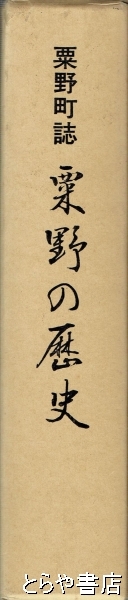 粟野町誌
粟野の歴史
とらや書店